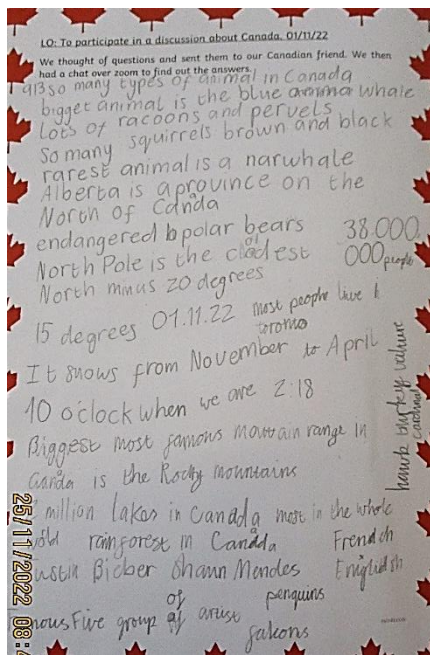 LO: To participate in a discussion about Canada. 01/11/22
We thought of questions and sent them to our Canadian friend. We then
had a chat over zoom to find out the answers.
913 so many types of animal in Canada
bigget animal is the blue whale
Lots of racoons and
So many squirrels brown and black
rarest animal is a narwhale
Alberta is aprovince on the
North of Canada
endangered polar bears 38.000.
North Pole is the 000 people
North mnus 20 degrees
15 degrees 01.11.22 most people live
toromo
It snows from November to April
10 o'clock when we are 2:18
Biggest most famous mountain range in
Canada is the Rocky mountains
million lakes in Canada most in the whole
rainforest in Canada French
Bieber Shawn Mendes English
of penguins
Five group of artist
falcons
hawk turkey vulture
Cardinal
25/11/2022 08: